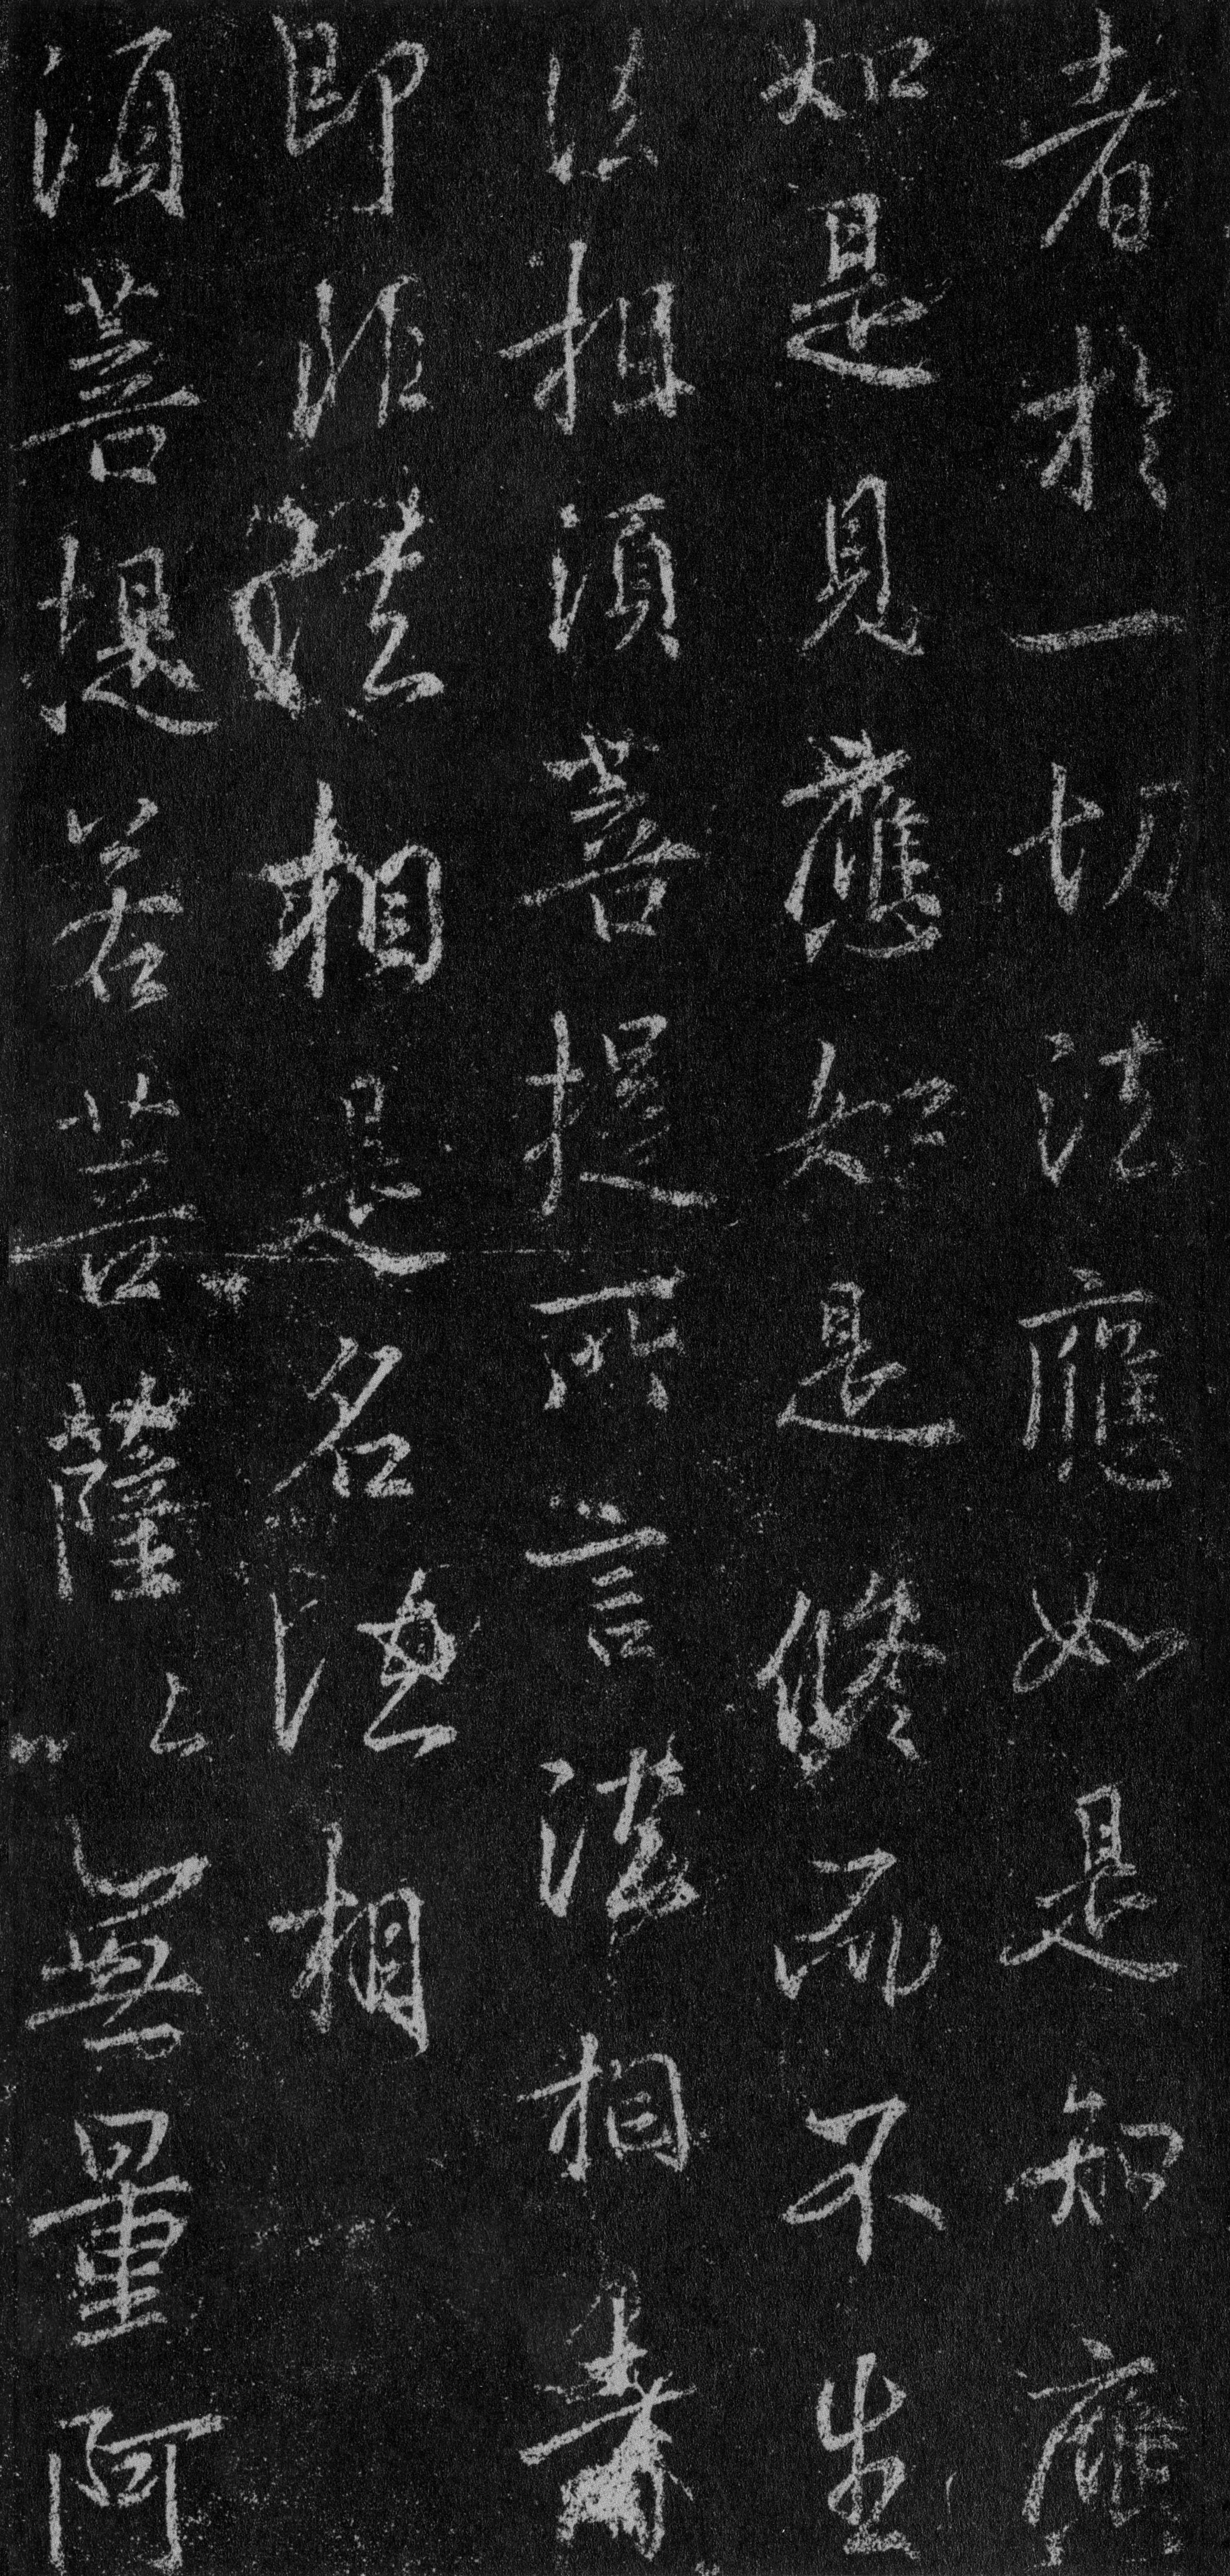 者於一切法應如是知應
如是見應如是修而不生
法相須菩提所言法相
即非法相是名法相
須菩提若菩薩〻無量阿